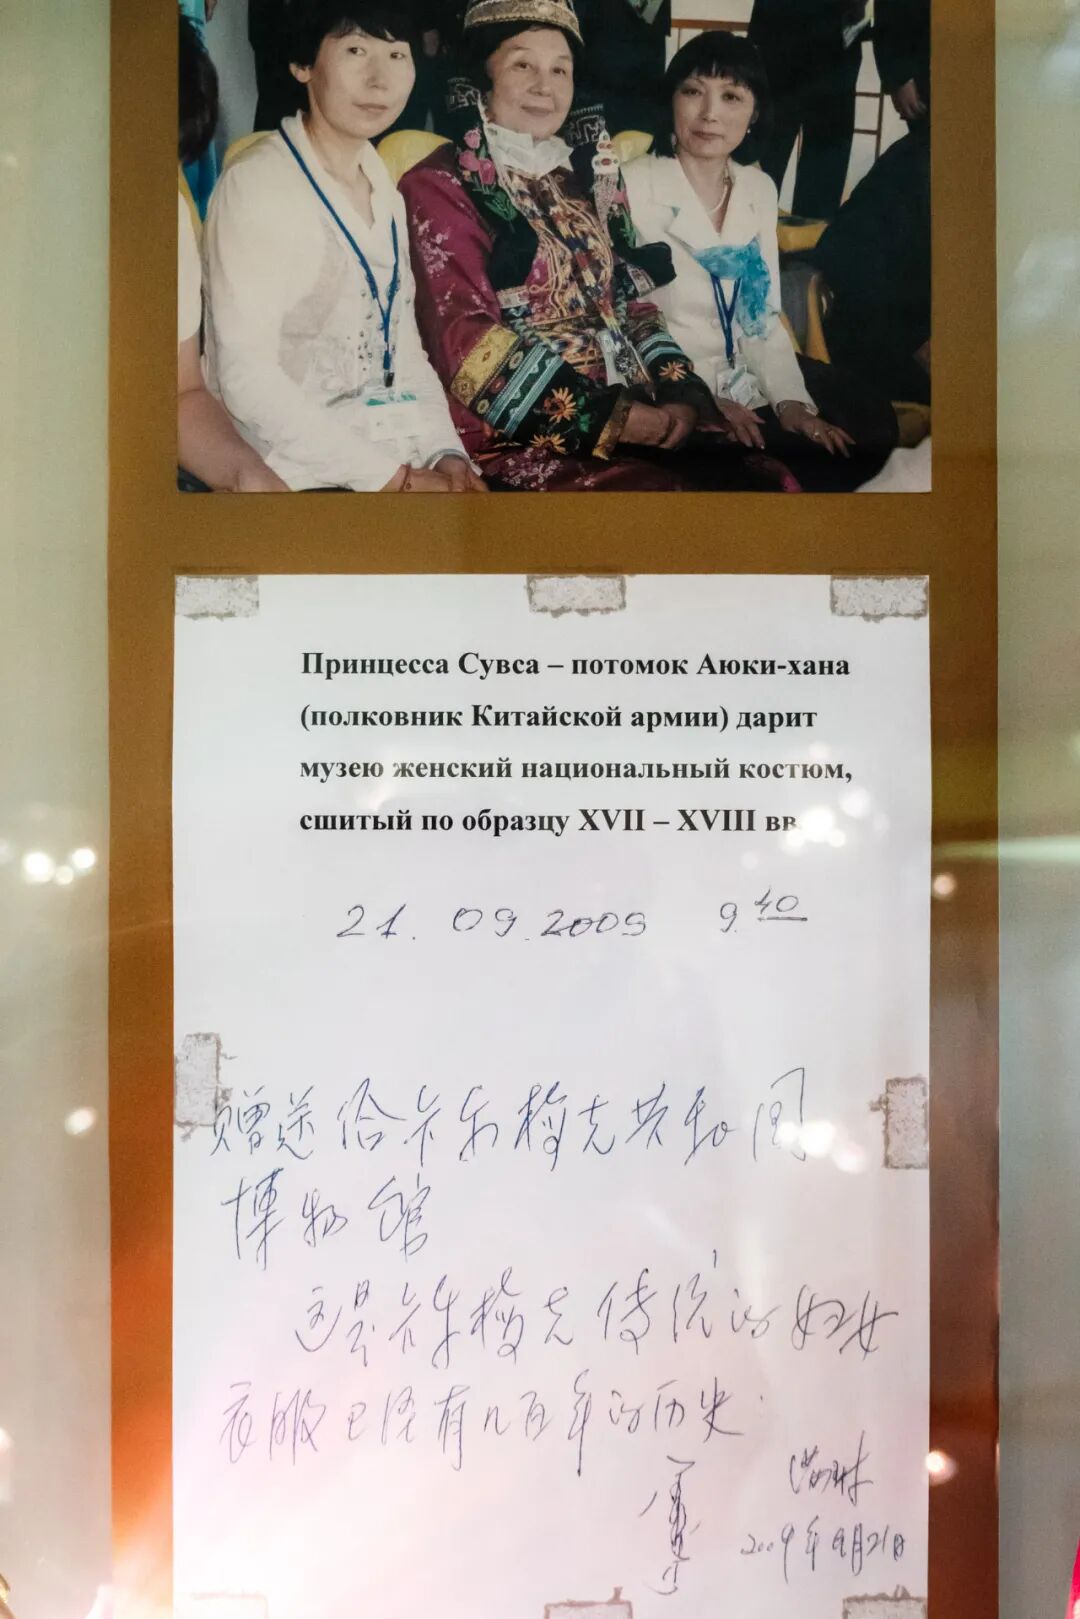 Принцесса Сувса – потомок Аюки-хана
(полковник Китайской армии) дарит
музею женский национальный костюм,
сшитый по образцу XVII – XVIII вв.
21.09.2009 9.40
赠送给卡尔梅克共和国
博物馆
这是卡尔梅克传统的妇女
衣服已经有几百年的历史.
2009年9月21日